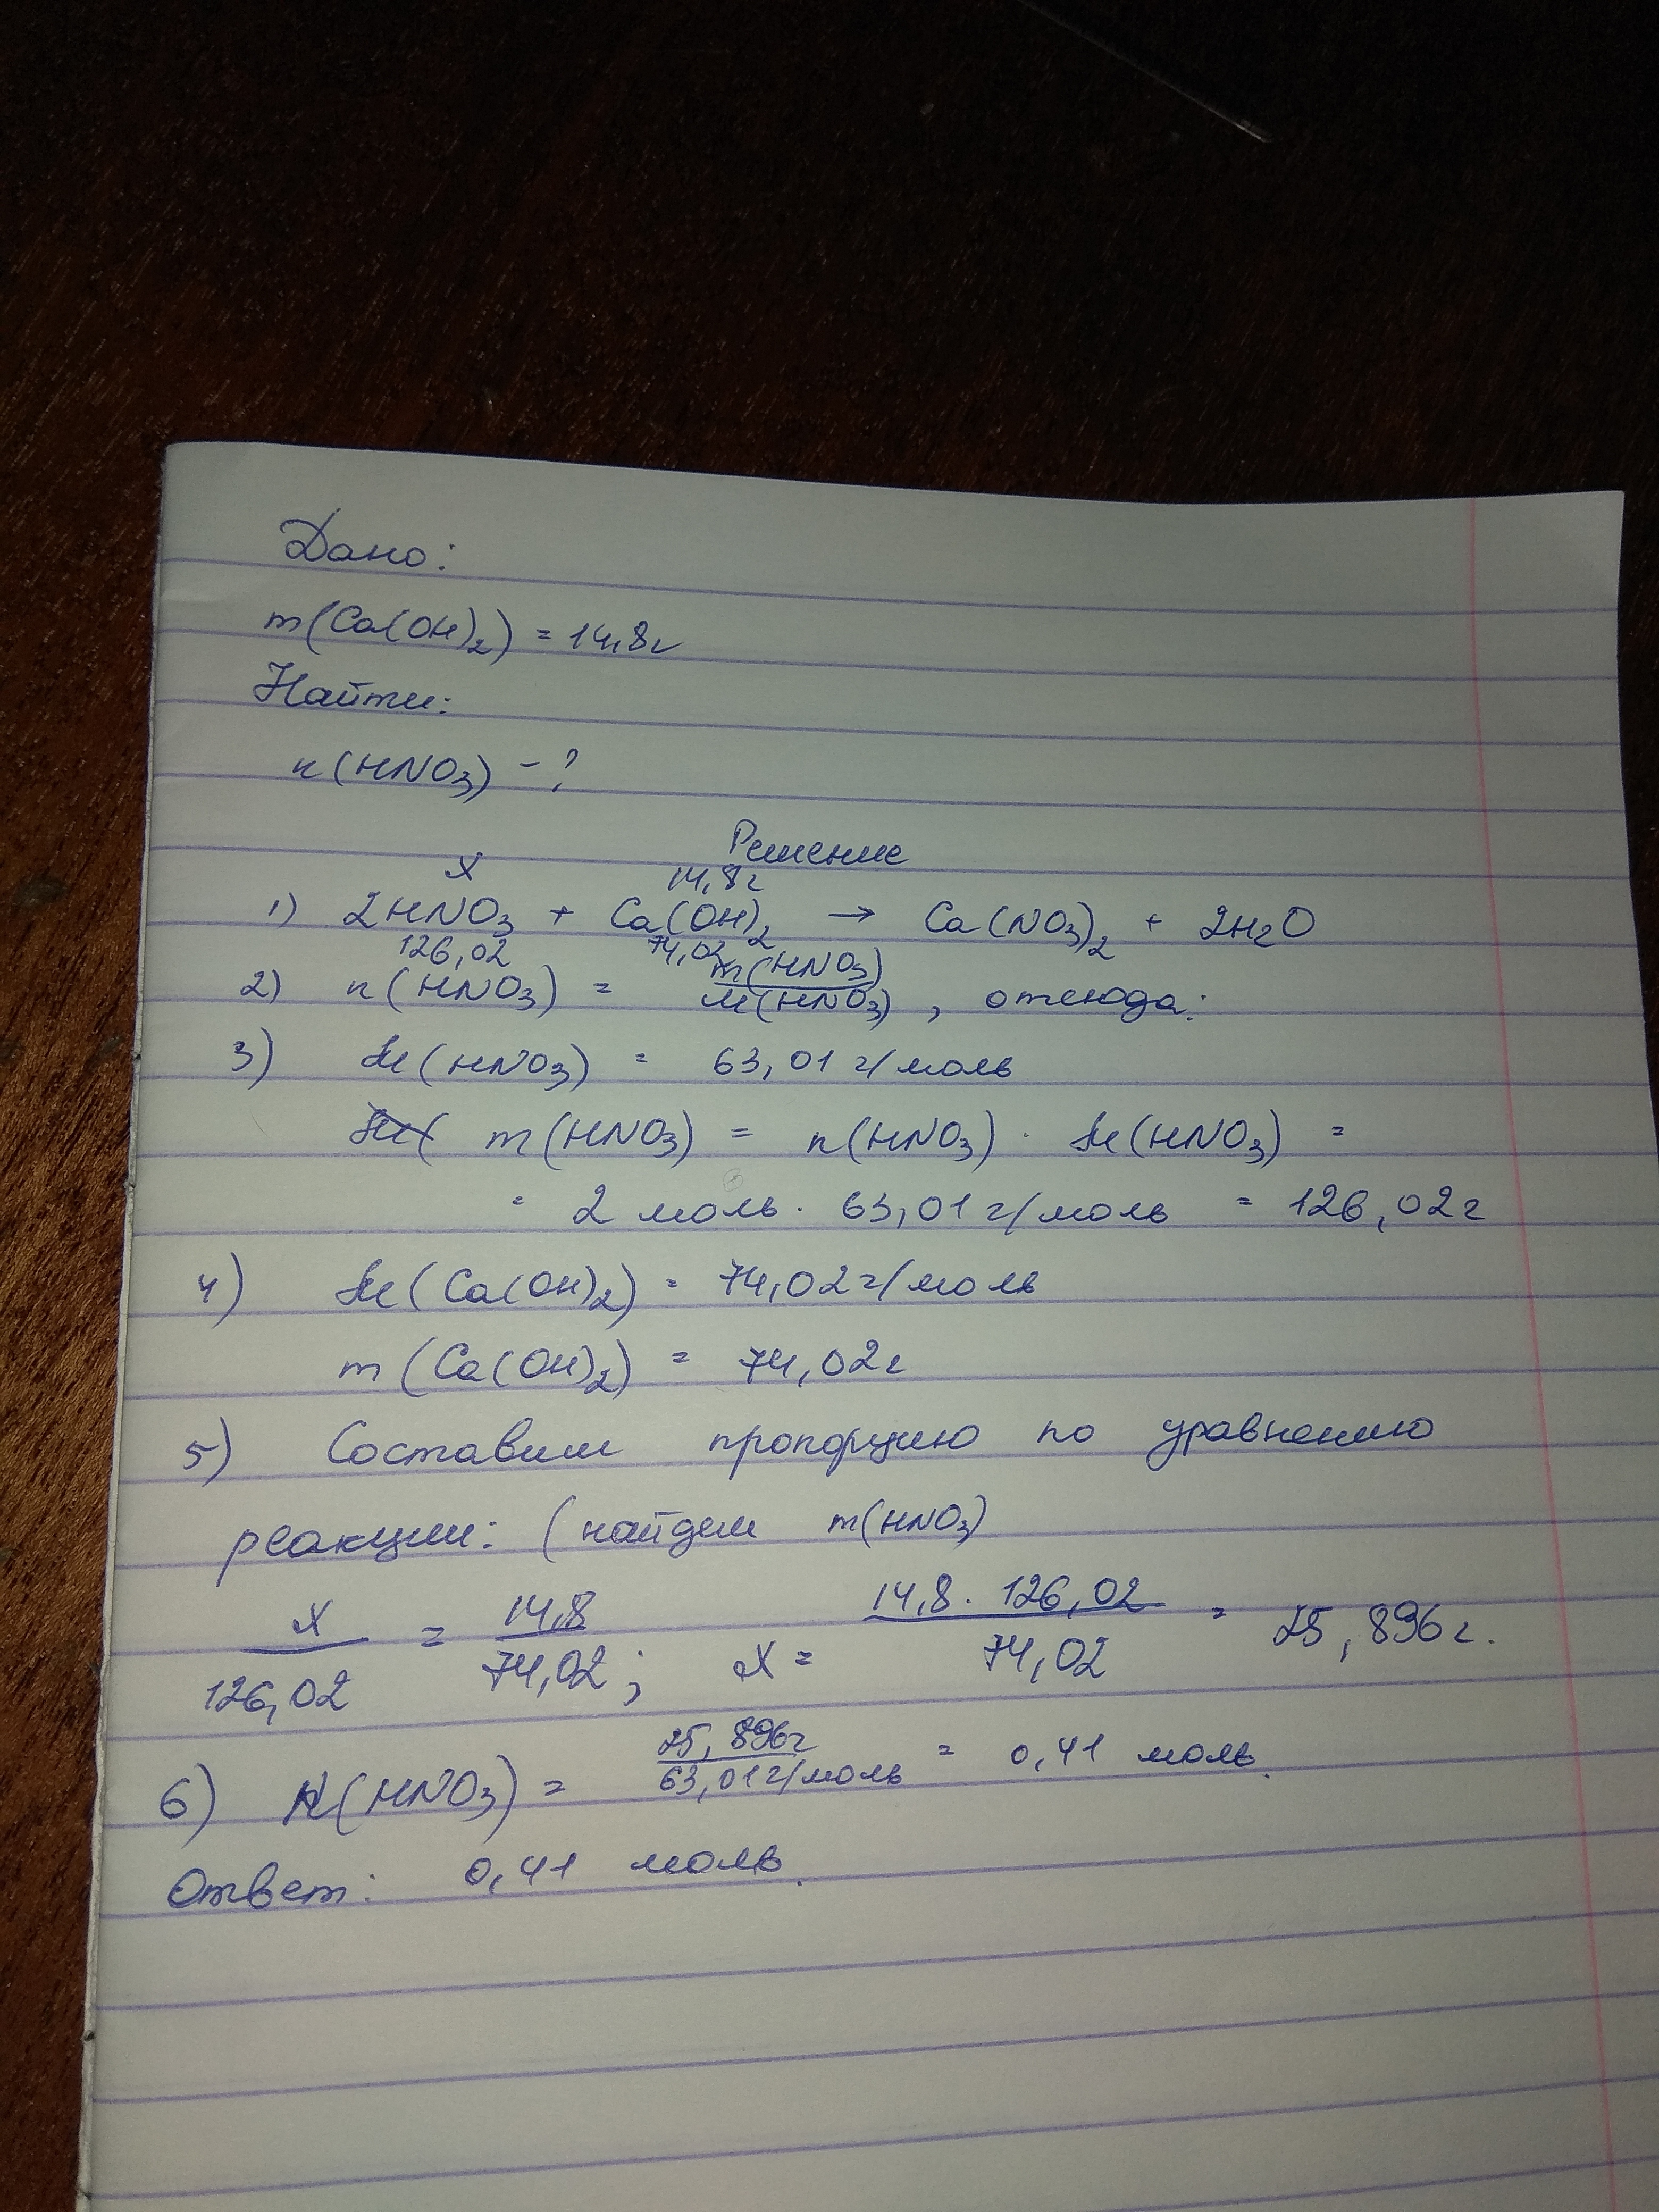 Дано:
m(Ca(OH)₂) = 14,8г
Найти:
n(HNO₃) - ?
Решение
x 14,8г
1) 2HNO₃ + Ca(OH)₂ → Ca(NO₃)₂ + 2H₂O
126,02 74,02
2) n(HNO₃) = m(HNO₃) / M(HNO₃) , отсюда:
3) M(HNO₃) = 63,01 г/моль
m(HNO₃) = n(HNO₃) · M(HNO₃) =
= 2 моль · 63,01 г/моль = 126,02г
4) M(Ca(OH)₂) = 74,02 г/моль
m(Ca(OH)₂) = 74,02г
5) Составим пропорцию по уравнению
реакции: (найдем m(HNO₃)
x / 126,02 = 14,8 / 74,02 ; x = 14,8 · 126,02 / 74,02 = 25,896г.
6) N(HNO₃) = 25,896г / 63,01г/моль = 0,41 моль.
Ответ: 0,41 моль.